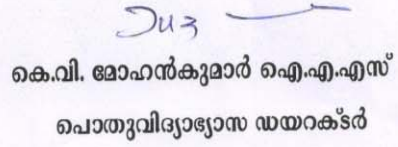 കെ.വി. മോഹൻകുമാർ ഐ.എ.എസ്
പൊതുവിദ്യാഭ്യാസ ഡയറക്ടർ